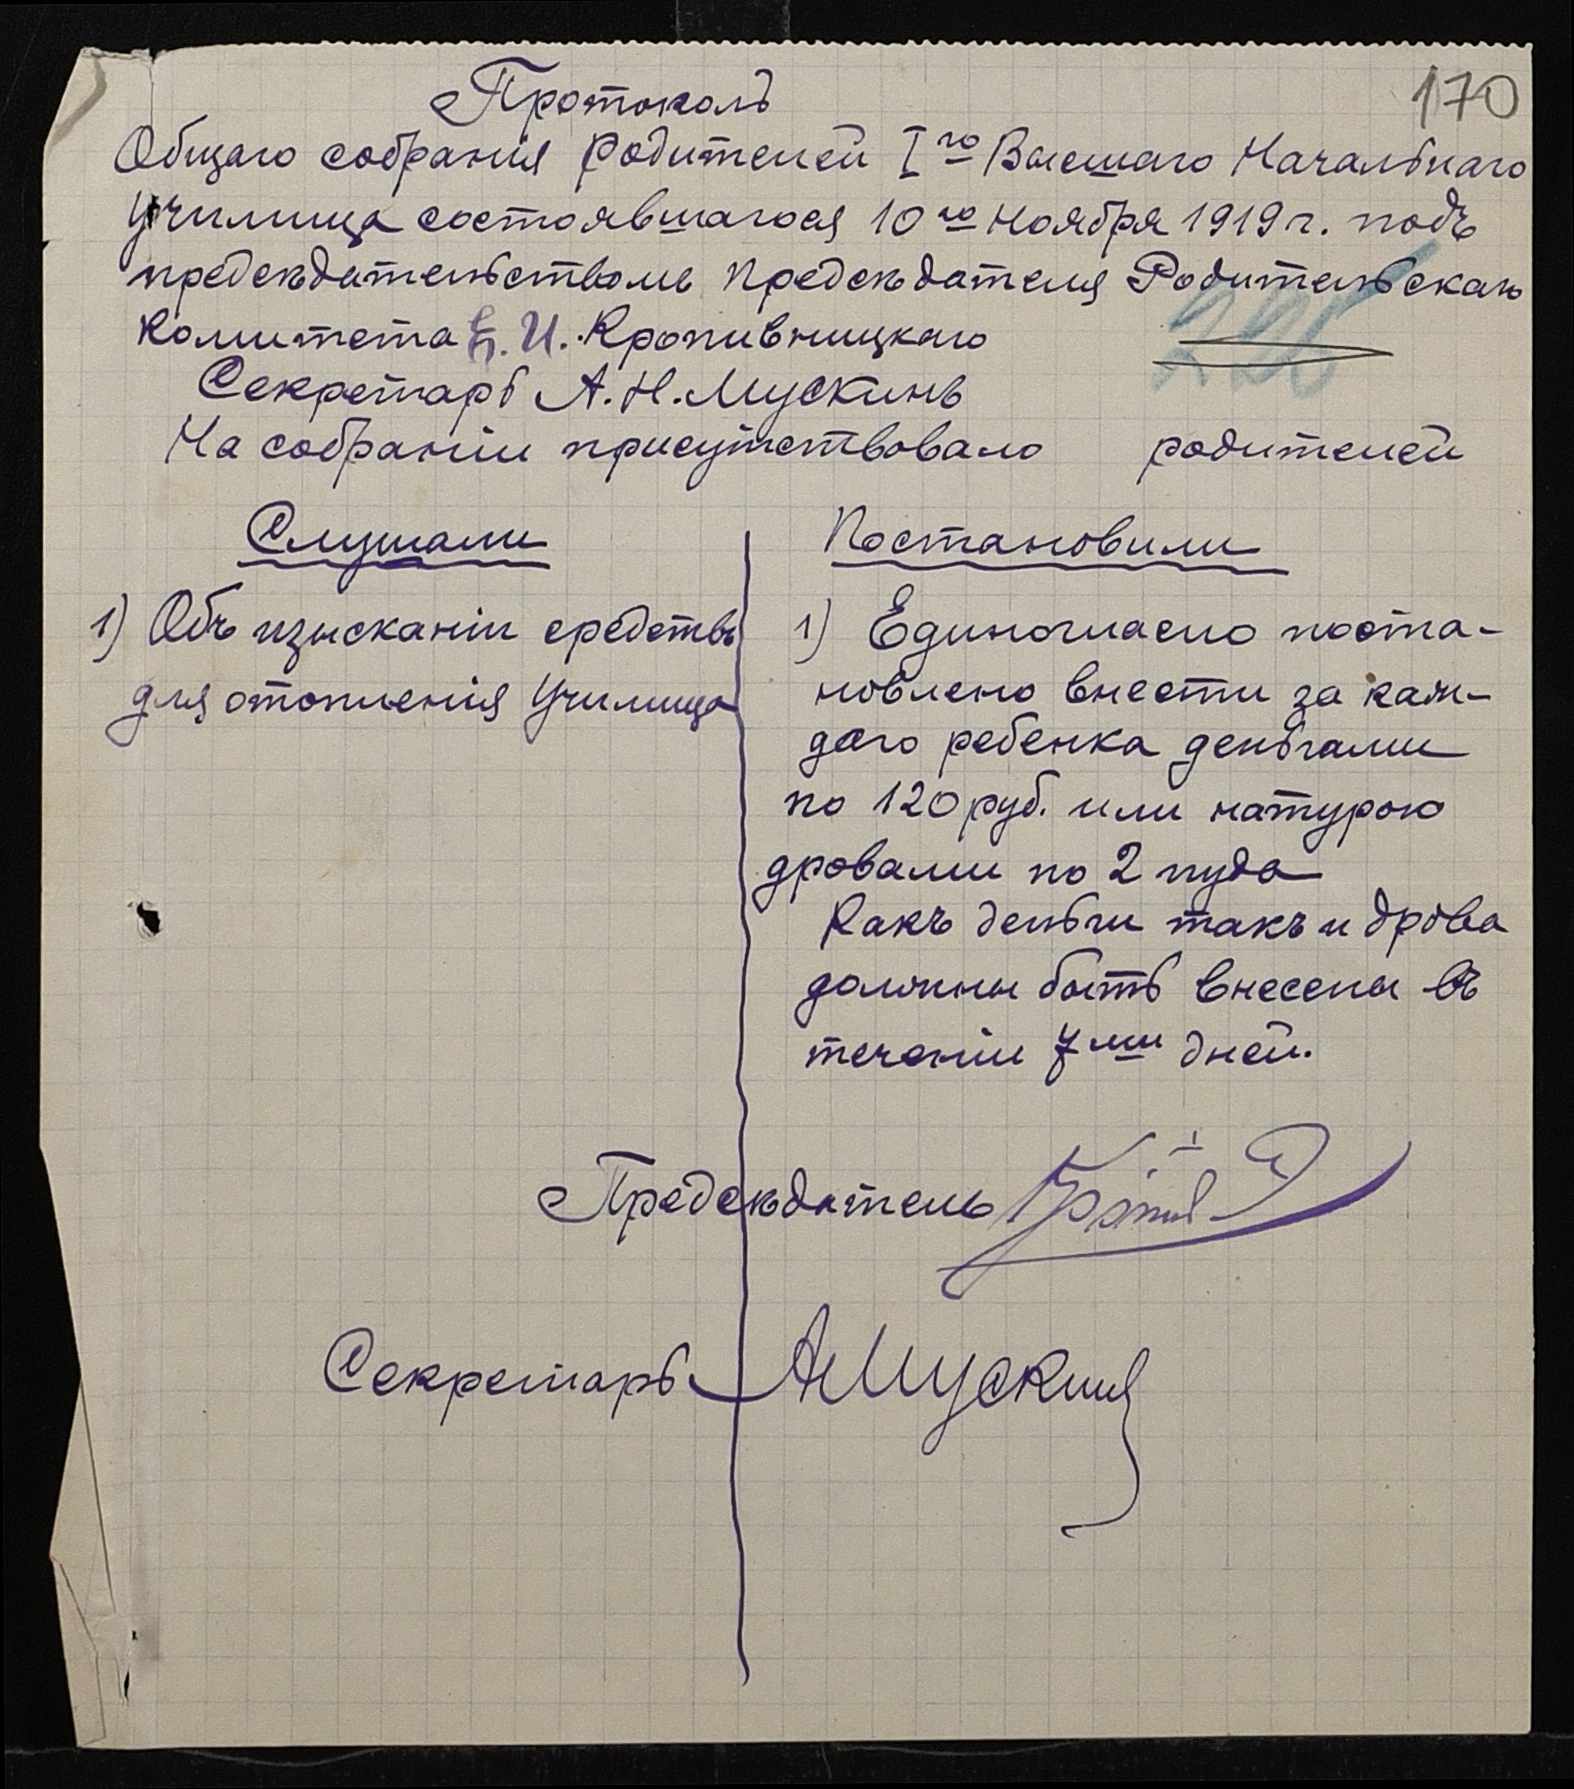 170
Протоколъ
Общаго собранія Родителей I го Высшаго Начальнаго
Училища состоявшагося 10 го ноября 1919 г. подъ
предсѣдательствомъ Предсѣдателя Родительскаго
Комитета Е. И. Кропивницкаго
Секретарь А. Н. Мускинъ
На собраніи присутствовало родителей
Слушали
1) Объ изысканіи средствъ
для отопленія Училища
Постановили
1) Единогласно поста-
новлено внести за каж-
даго ребенка деньгами
по 120 руб. или натурою
дровами по 2 пуда
Какъ деньги такъ и дрова
должны быть внесены въ
теченіи 7 ми дней.
Предсѣдатель
Секретарь АМускинъ